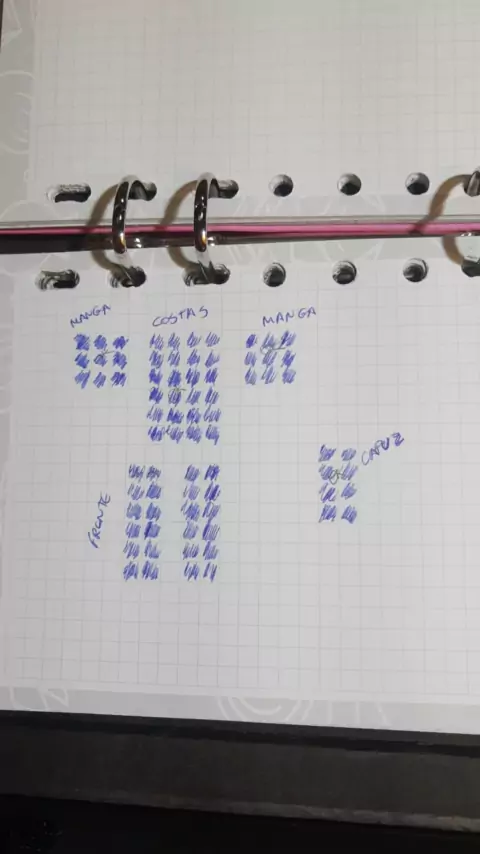 MANGA COSTAS MANGA
CAPUZ
FRONTE